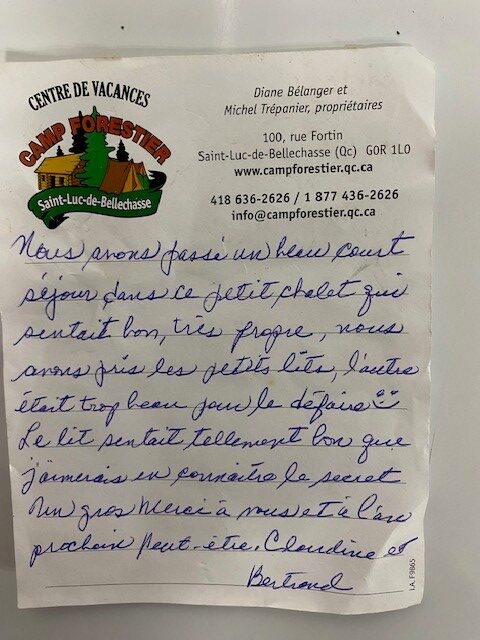 CENTRE DE VACANCES
CAMP FORESTIER
Saint-Luc-de-Bellechasse
Diane Bélanger et
Michel Trépanier, propriétaires
100, rue Fortin
Saint-Luc-de-Bellechasse (Qc) G0R 1L0
www.campforestier.qc.ca
418 636-2626 / 1 877 436-2626
info@campforestier.qc.ca
Nous avons passé un beau court
séjour dans ce petit chalet qui
sentait bon, très propre, nous
avons pris les petits lits, l'autre
était trop beau pour le défaire
Le lit sentait tellement bon que
j'aimerais en connaitre le secret
Un gros Merci à vous et à l'an
prochain peut-être. Claudine et
Bertrand
I.A. F9865